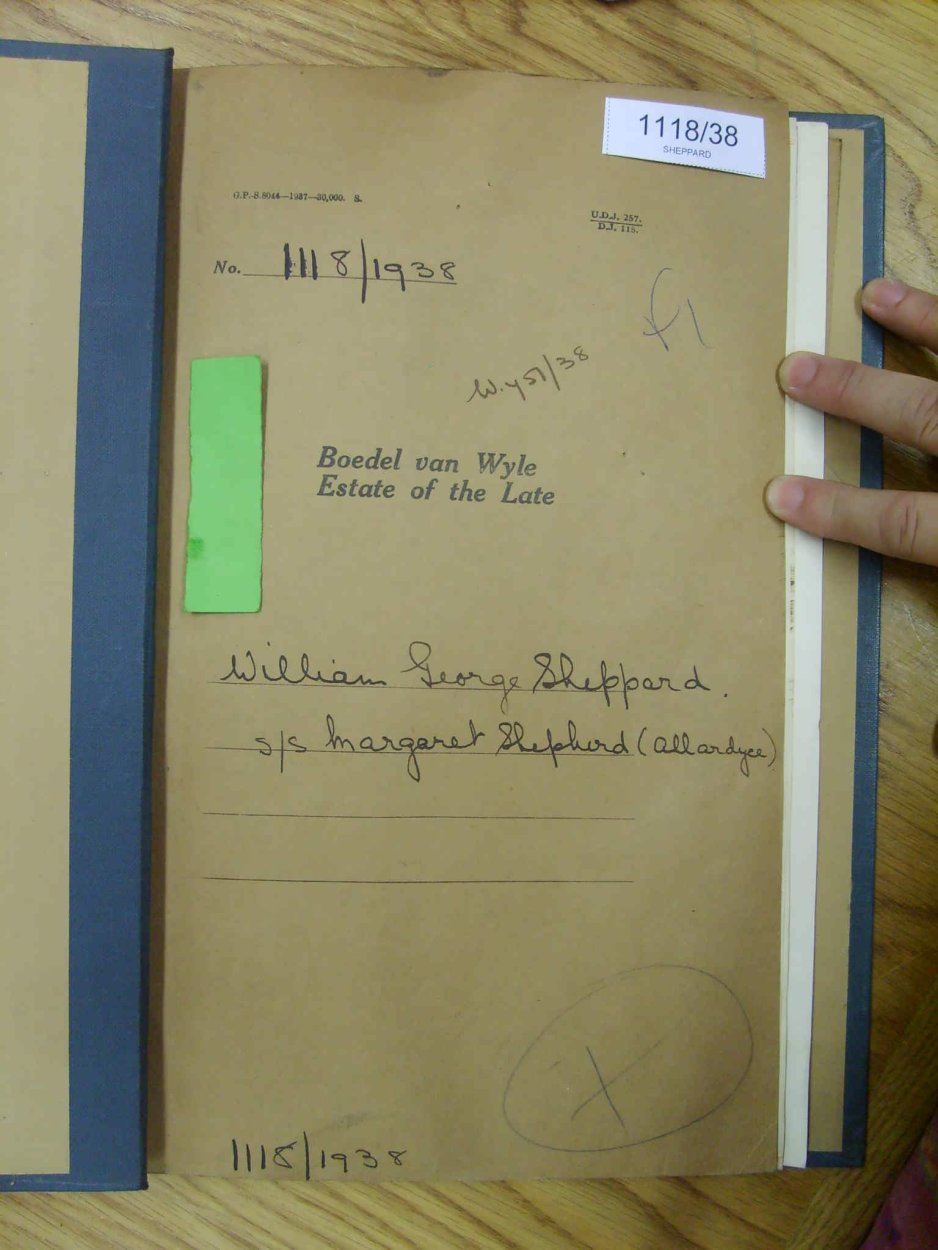 1118/38
SHEPPARD
G.P.-S.8044—1937—30,000. S.
U.D.J. 257.
D.J. 115.
No. 1118/1938
Boedel van Wyle
Estate of the Late
William George Sheppard.
s/s Margaret Shepherd (allardyce)
X
1118/1938